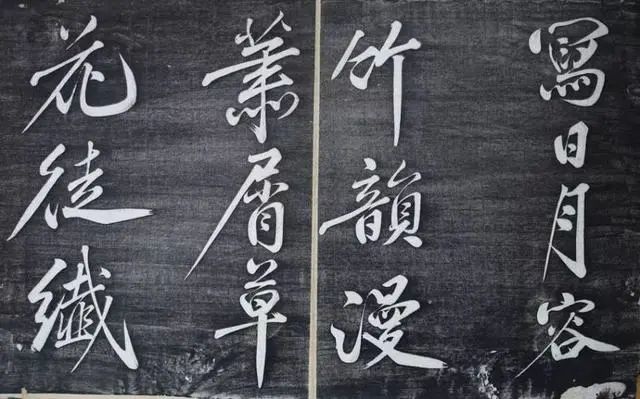 寫日月容
竹韻漫
蕭屑草
花徒纖